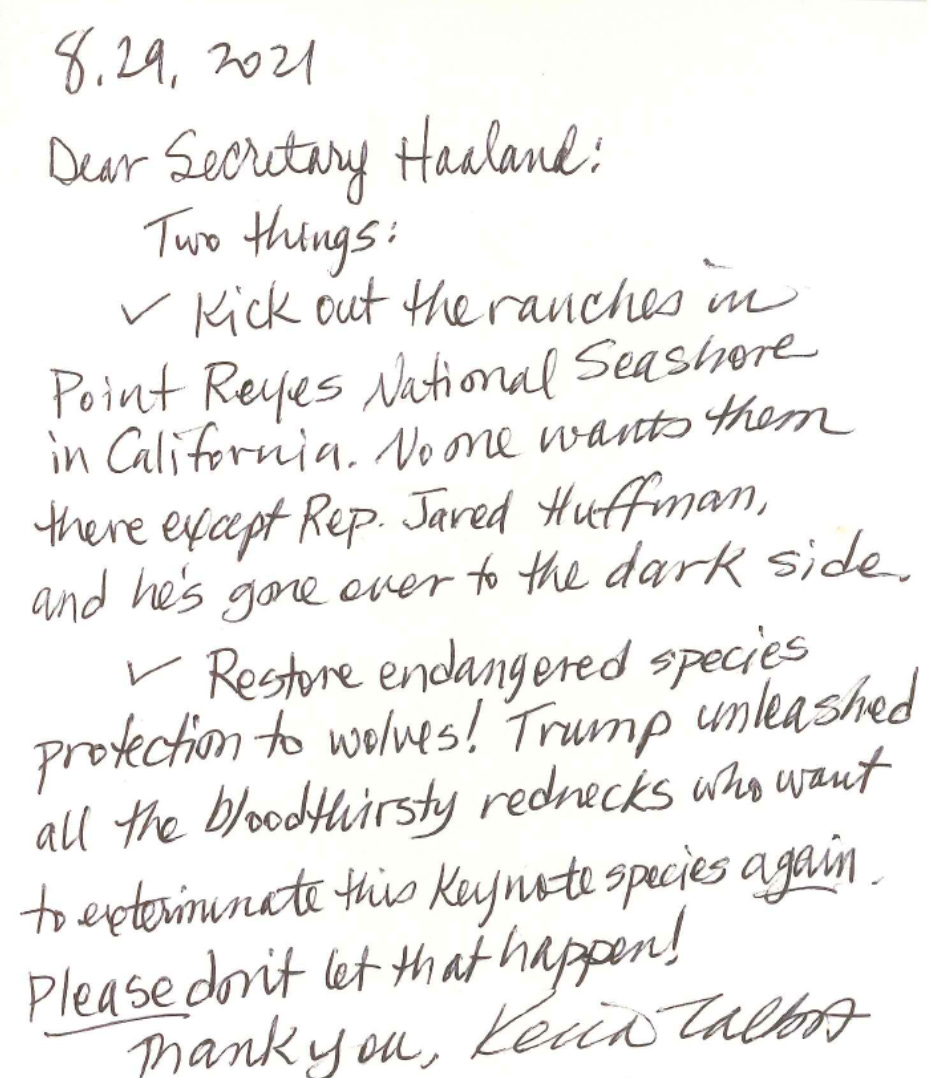 8.29, 2021
Dear Secretary Haaland:
Two things:
✓ Kick out the ranches in
Point Reyes National Seashore
in California. No one wants them
there except Rep. Jared Huffman,
and he's gone over to the dark side.
✓ Restore endangered species
protection to wolves! Trump unleashed
all the bloodthirsty rednecks who want
to exterminate this Keynote species again.
Please don't let that happen!
Thank you, Talbot